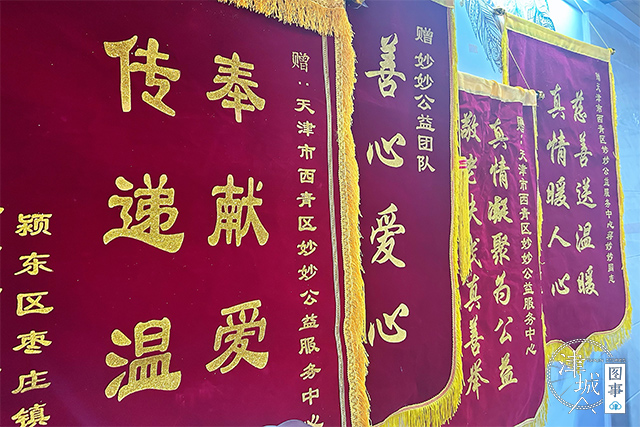 赠：天津市西青区妙妙公益服务中心
奉献爱
传递温
颍东区枣庄镇
赠妙妙公益团队
善心爱心
赠：天津市西青区妙妙公益服务中心
真情凝聚为公益
敬老扶
真善举
赠天津市西青区妙妙公益服务中心
慈善送温暖
真情暖人心
津城
图事